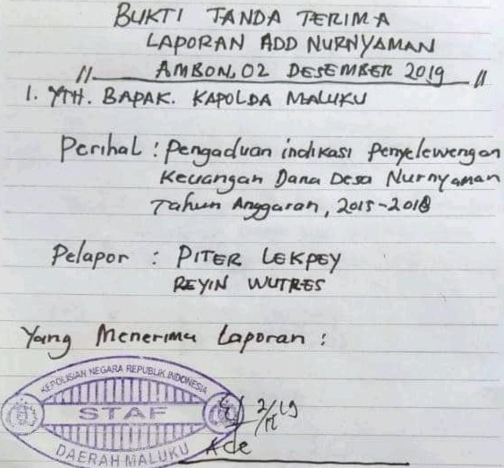 BUKTI TANDA TERIMA
LAPORAN ADD NURNYAMAN
// AMBON, 02 DESEMBER 2019 //
1. YTH. BAPAK. KAPOLDA MALUKU
Perihal : Pengaduan indikasi Penyelewengan
Keuangan Dana Desa Nurnyaman
Tahun Anggaran, 2015-2018
Pelapor : PITER LEKPEY
REYIN WUTRES
Yang Menerima Laporan :
KEPOLISIAN NEGARA REPUBLIK INDONESIA
STAF
DAERAH MALUKU
Ade